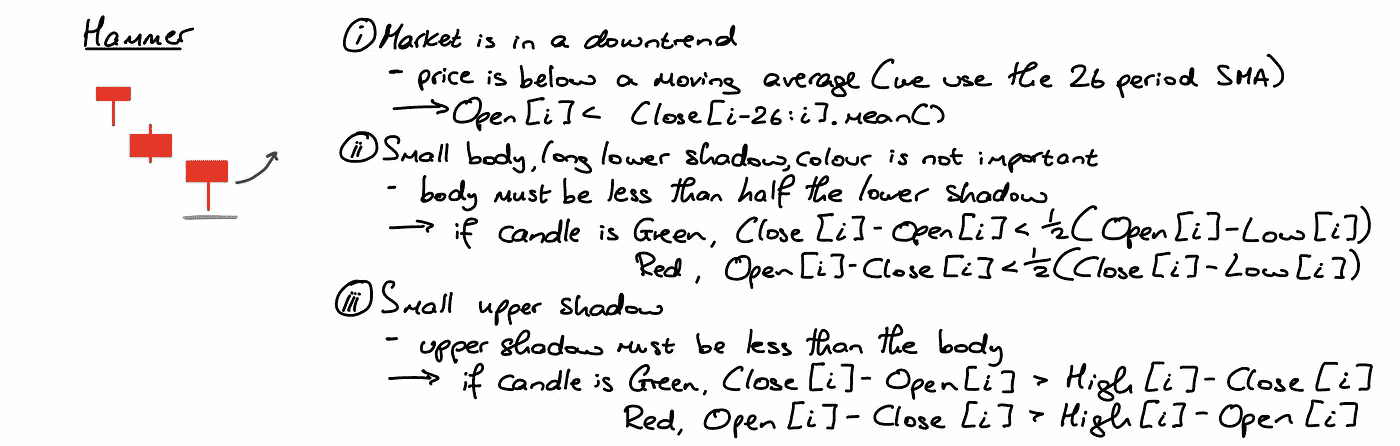 Hammer
(i) Market is in a downtrend
- price is below a moving average (we use the 26 period SMA)
→ Open[i] < Close[i-26:i].mean()
(ii) Small body, long lower shadow, colour is not important
- body must be less than half the lower shadow
→ if candle is Green, Close[i]-Open[i] < ½(Open[i]-Low[i])
Red, Open[i]-Close[i] < ½(Close[i]-Low[i])
(iii) Small upper shadow
- upper shadow must be less than the body
→ if candle is Green, Close[i]-Open[i] > High[i]-Close[i]
Red, Open[i]-Close[i] > High[i]-Open[i]